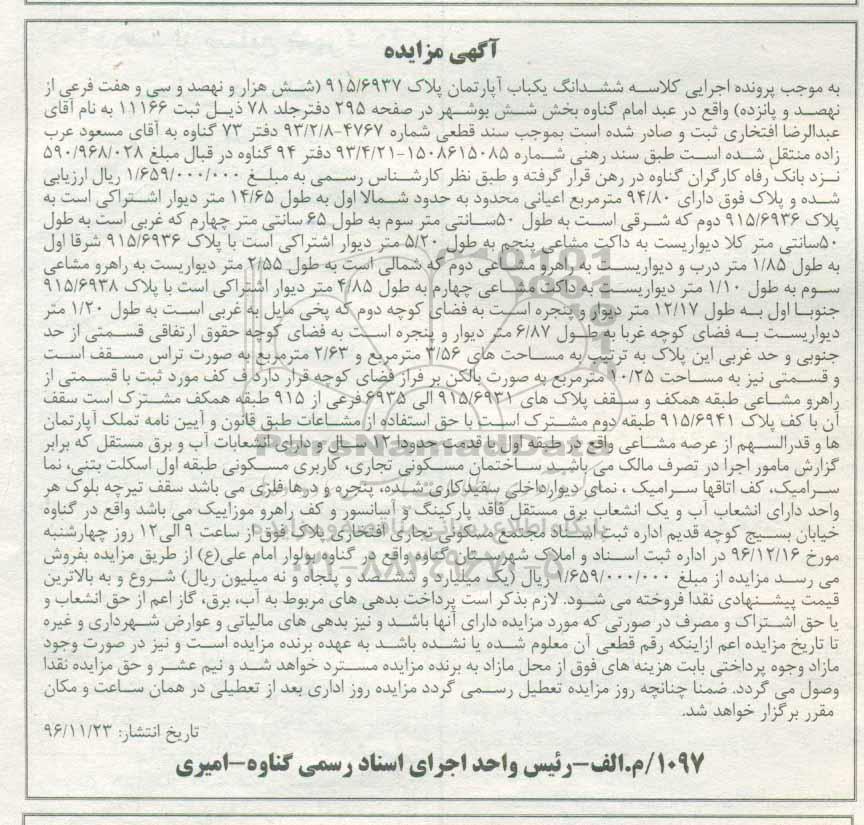 آگهی مزایده
به موجب پرونده اجرایی کلاسه ششدانگ یکباب آپارتمان پلاک ۹۱۵/۶۹۳۷ (شش هزار و نهصد و سی و هفت فرعی از
نهصد و پانزده) واقع در عبد امام گناوه بخش شش بوشهر در صفحه ۲۹۵ دفترجلد ۷۸ ذیل ثبت ۱۱۱۶۶ به نام آقای
عبدالرضا افتخاری ثبت و صادر شده است بموجب سند قطعی شماره ۴۷۶۷-۹۳/۲/۸ دفتر ۷۳ گناوه به آقای مسعود عرب
زاده منتقل شده است طبق سند رهنی شماره ۱۵۰۸۶۱۵۰۸۵-۹۳/۴/۲۱ دفتر ۹۴ گناوه در قبال مبلغ ۵۹۰/۹۶۸/۰۲۸
نزد بانک رفاه کارگران گناوه در رهن قرار گرفته و طبق نظر کارشناس رسمی به مبلغ ۱/۶۵۹/۰۰۰/۰۰۰ ریال ارزیابی
شده و پلاک فوق دارای ۹۴/۸۰ مترمربع اعیانی محدود به حدود شمالا اول به طول ۱۴/۶۵ متر دیوار اشتراکی است به
پلاک ۹۱۵/۶۹۳۶ دوم که شرقی است به طول ۵۰سانتی متر سوم به طول ۶۵ سانتی متر چهارم که غربی است به طول
۵۰سانتی متر کلا دیواریست به داکت مشاعی پنجم به طول ۵/۲۰ متر دیوار اشتراکی است با پلاک ۹۱۵/۶۹۳۶ شرقا اول
به طول ۱/۸۵ متر درب و دیواریست به راهرو مشاعی دوم که شمالی است به طول ۲/۵۵ متر دیواریست به راهرو مشاعی
سوم به طول ۱/۱۰ متر دیواریست به داکت مشاعی چهارم به طول ۴/۸۵ متر دیوار اشتراکی است با پلاک ۹۱۵/۶۹۳۸
جنوبا اول به طول ۱۲/۱۷ متر دیوار و پنجره است به فضای کوچه دوم که پخی مایل به غربی است به طول ۱/۲۰ متر
دیواریست به فضای کوچه غربا به طول ۶/۸۷ متر دیوار و پنجره است به فضای کوچه حقوق ارتفاقی قسمتی از حد
جنوبی و حد غربی این پلاک به ترتیب به مساحت های ۳/۵۶ مترمربع و ۲/۶۳ مترمربع به صورت تراس مسقف است
و قسمتی نیز به مساحت ۱۰/۲۵ مترمربع به صورت بالکن بر فراز فضای کوچه قرار دارد ف کف مورد ثبت با قسمتی از
راهرو مشاعی طبقه همکف و سقف پلاک های ۹۱۵/۶۹۳۱ الی ۶۹۳۵ فرعی از ۹۱۵ طبقه همکف مشترک است سقف
آن با کف پلاک ۹۱۵/۶۹۴۱ طبقه دوم مشترک است با حق استفاده از مشاعات طبق قانون و آیین نامه تملک آپارتمان
ها و قدرالسهم از عرصه مشاعی واقع در طبقه اول با قدمت حدودا ۱۲ سال و دارای انشعابات آب و برق مستقل که برابر
گزارش مامور اجرا در تصرف مالک می باشد ساختمان مسکونی تجاری، کاربری مسکونی طبقه اول اسکلت بتنی، نما
سرامیک، کف اتاقها سرامیک ، نمای دیوارداخلی سفیدکاری شده، پنجره و درها فلزی می باشد سقف تیرچه بلوک هر
واحد دارای انشعاب آب و یک انشعاب برق مستقل فاقد پارکینگ و آسانسور و کف راهرو موزاییک می باشد واقع در گناوه
خیابان بسیج کوچه قدیم اداره ثبت اسناد مجتمع مسکونی تجاری افتخاری پلاک فوق از ساعت ۹ الی۱۲ روز چهارشنبه
مورخ ۹۶/۱۲/۱۶ در اداره ثبت اسناد و املاک شهرستان گناوه واقع در گناوه بولوار امام علی(ع) از طریق مزایده بفروش
می رسد مزایده از مبلغ ۱/۶۵۹/۰۰۰/۰۰۰ ریال (یک میلیارد و ششصد و پنجاه و نه میلیون ریال) شروع و به بالاترین
قیمت پیشنهادی نقدا فروخته می شود. لازم بذکر است پرداخت بدهی های مربوط به آب، برق، گاز اعم از حق انشعاب و
یا حق اشتراک و مصرف در صورتی که مورد مزایده دارای آنها باشد و نیز بدهی های مالیاتی و عوارض شهرداری و غیره
تا تاریخ مزایده اعم ازاینکه رقم قطعی آن معلوم شده یا نشده باشد به عهده برنده مزایده است و نیز در صورت وجود
مازاد وجوه پرداختی بابت هزینه های فوق از محل مازاد به برنده مزایده مسترد خواهد شد و نیم عشر و حق مزایده نقدا
وصول می گردد. ضمنا چنانچه روز مزایده تعطیل رسمی گردد مزایده روز اداری بعد از تعطیلی در همان ساعت و مکان
مقرر برگزار خواهد شد.
تاریخ انتشار: ۹۶/۱۱/۲۳
۱۰۹۷/م.الف-رئیس واحد اجرای اسناد رسمی گناوه-امیری
ParsNamadData